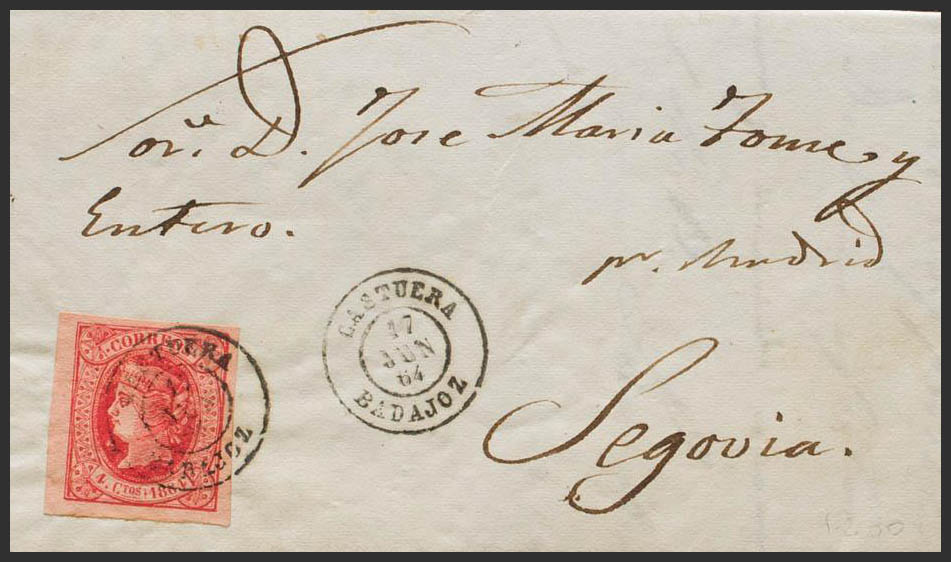 Sor. D. Jose Maria Tome y
Entero.
pr. Madrid
CASTUERA
17
JUN
64
BADAJOZ
Segovia.
CORREOS
TUERA
4. CTOS. 1864
ADAJOZ